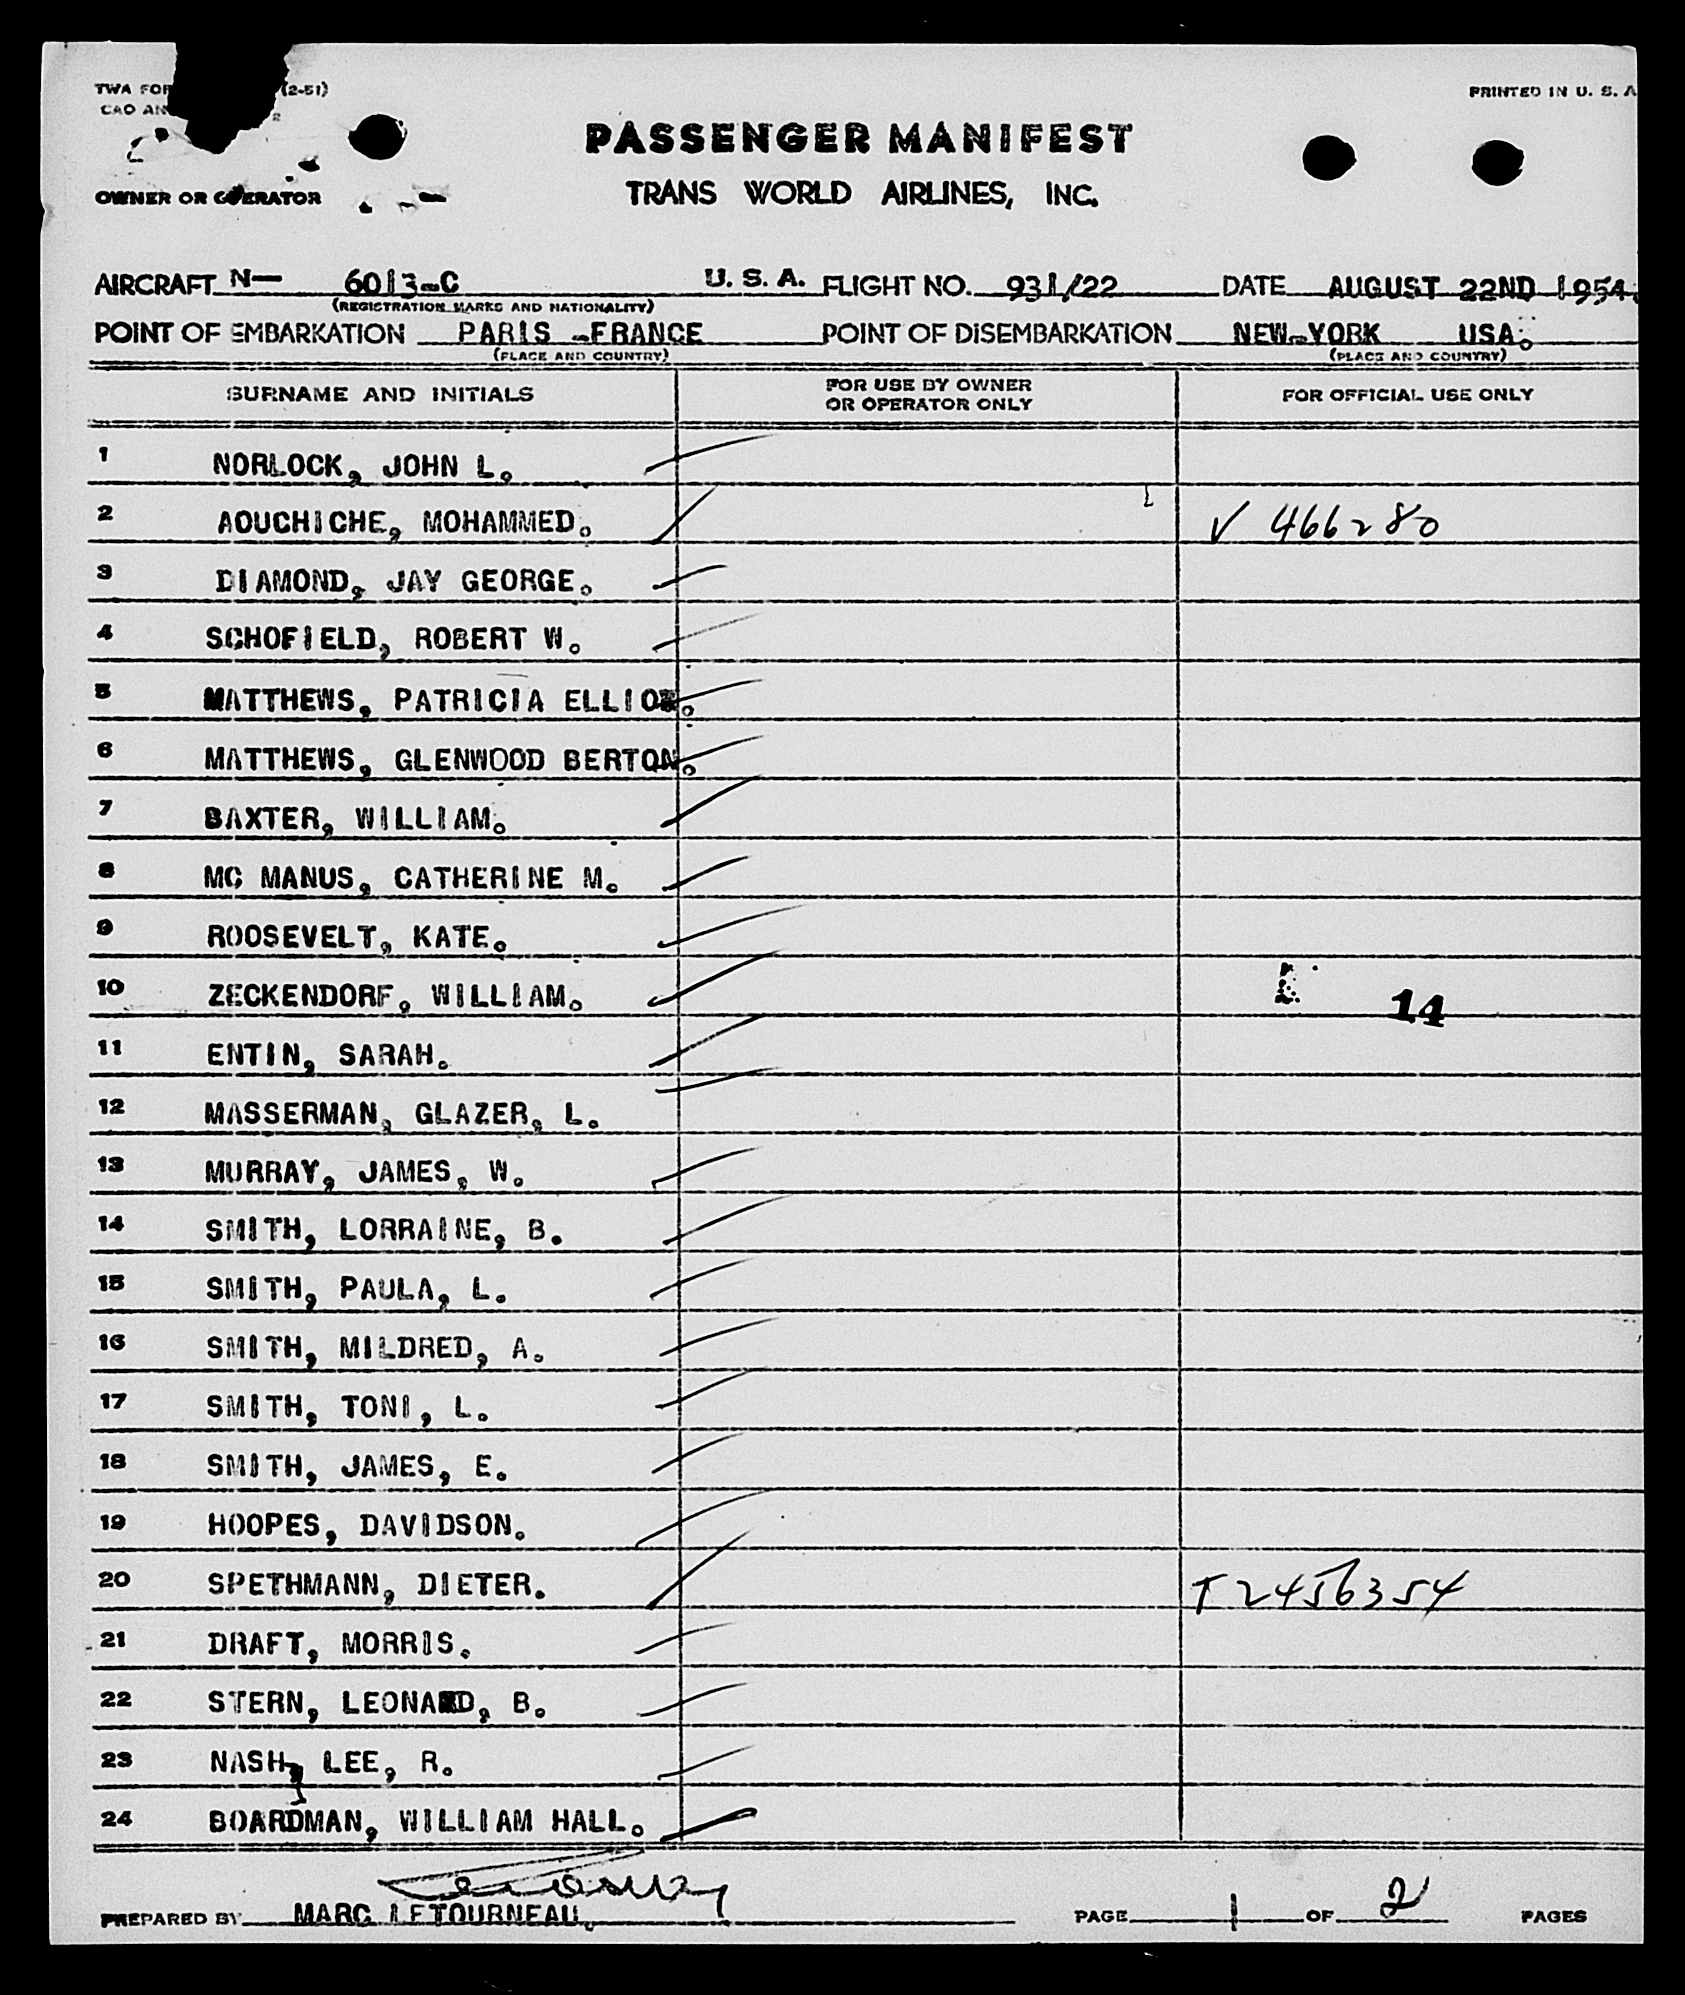 TWA FOR (2-51)
PRINTED IN U. S. A
CAO AN 2
PASSENGER MANIFEST
OWNER OR OPERATOR
TRANS WORLD AIRLINES, INC.
AIRCRAFT N— 6013-C U. S. A. FLIGHT NO. 931/22 DATE AUGUST 22ND 1954.
(REGISTRATION MARKS AND NATIONALITY)
POINT OF EMBARKATION PARIS -FRANCE POINT OF DISEMBARKATION NEW-YORK USA.
(PLACE AND COUNTRY) (PLACE AND COUNTRY)
SURNAME AND INITIALS FOR USE BY OWNER OR OPERATOR ONLY FOR OFFICIAL USE ONLY
1 NORLOCK, JOHN L.
2 AOUCHICHE, MOHAMMED. V 466280
3 DIAMOND, JAY GEORGE.
4 SCHOFIELD, ROBERT W.
5 MATTHEWS, PATRICIA ELLIOT.
6 MATTHEWS, GLENWOOD BERTON.
7 BAXTER, WILLIAM.
8 MC MANUS, CATHERINE M.
9 ROOSEVELT, KATE.
10 ZECKENDORF, WILLIAM. 14
11 ENTIN, SARAH.
12 MASSERMAN, GLAZER, L.
13 MURRAY, JAMES, W.
14 SMITH, LORRAINE, B.
15 SMITH, PAULA, L.
16 SMITH, MILDRED, A.
17 SMITH, TONI, L.
18 SMITH, JAMES, E.
19 HOOPES, DAVIDSON.
20 SPETHMANN, DIETER. T 2456354
21 DRAFT, MORRIS.
22 STERN, LEONARD, B.
23 NASH, LEE, R.
24 BOARDMAN, WILLIAM HALL.
PREPARED BY MARC LETOURNEAU. PAGE 1 OF 2 PAGES